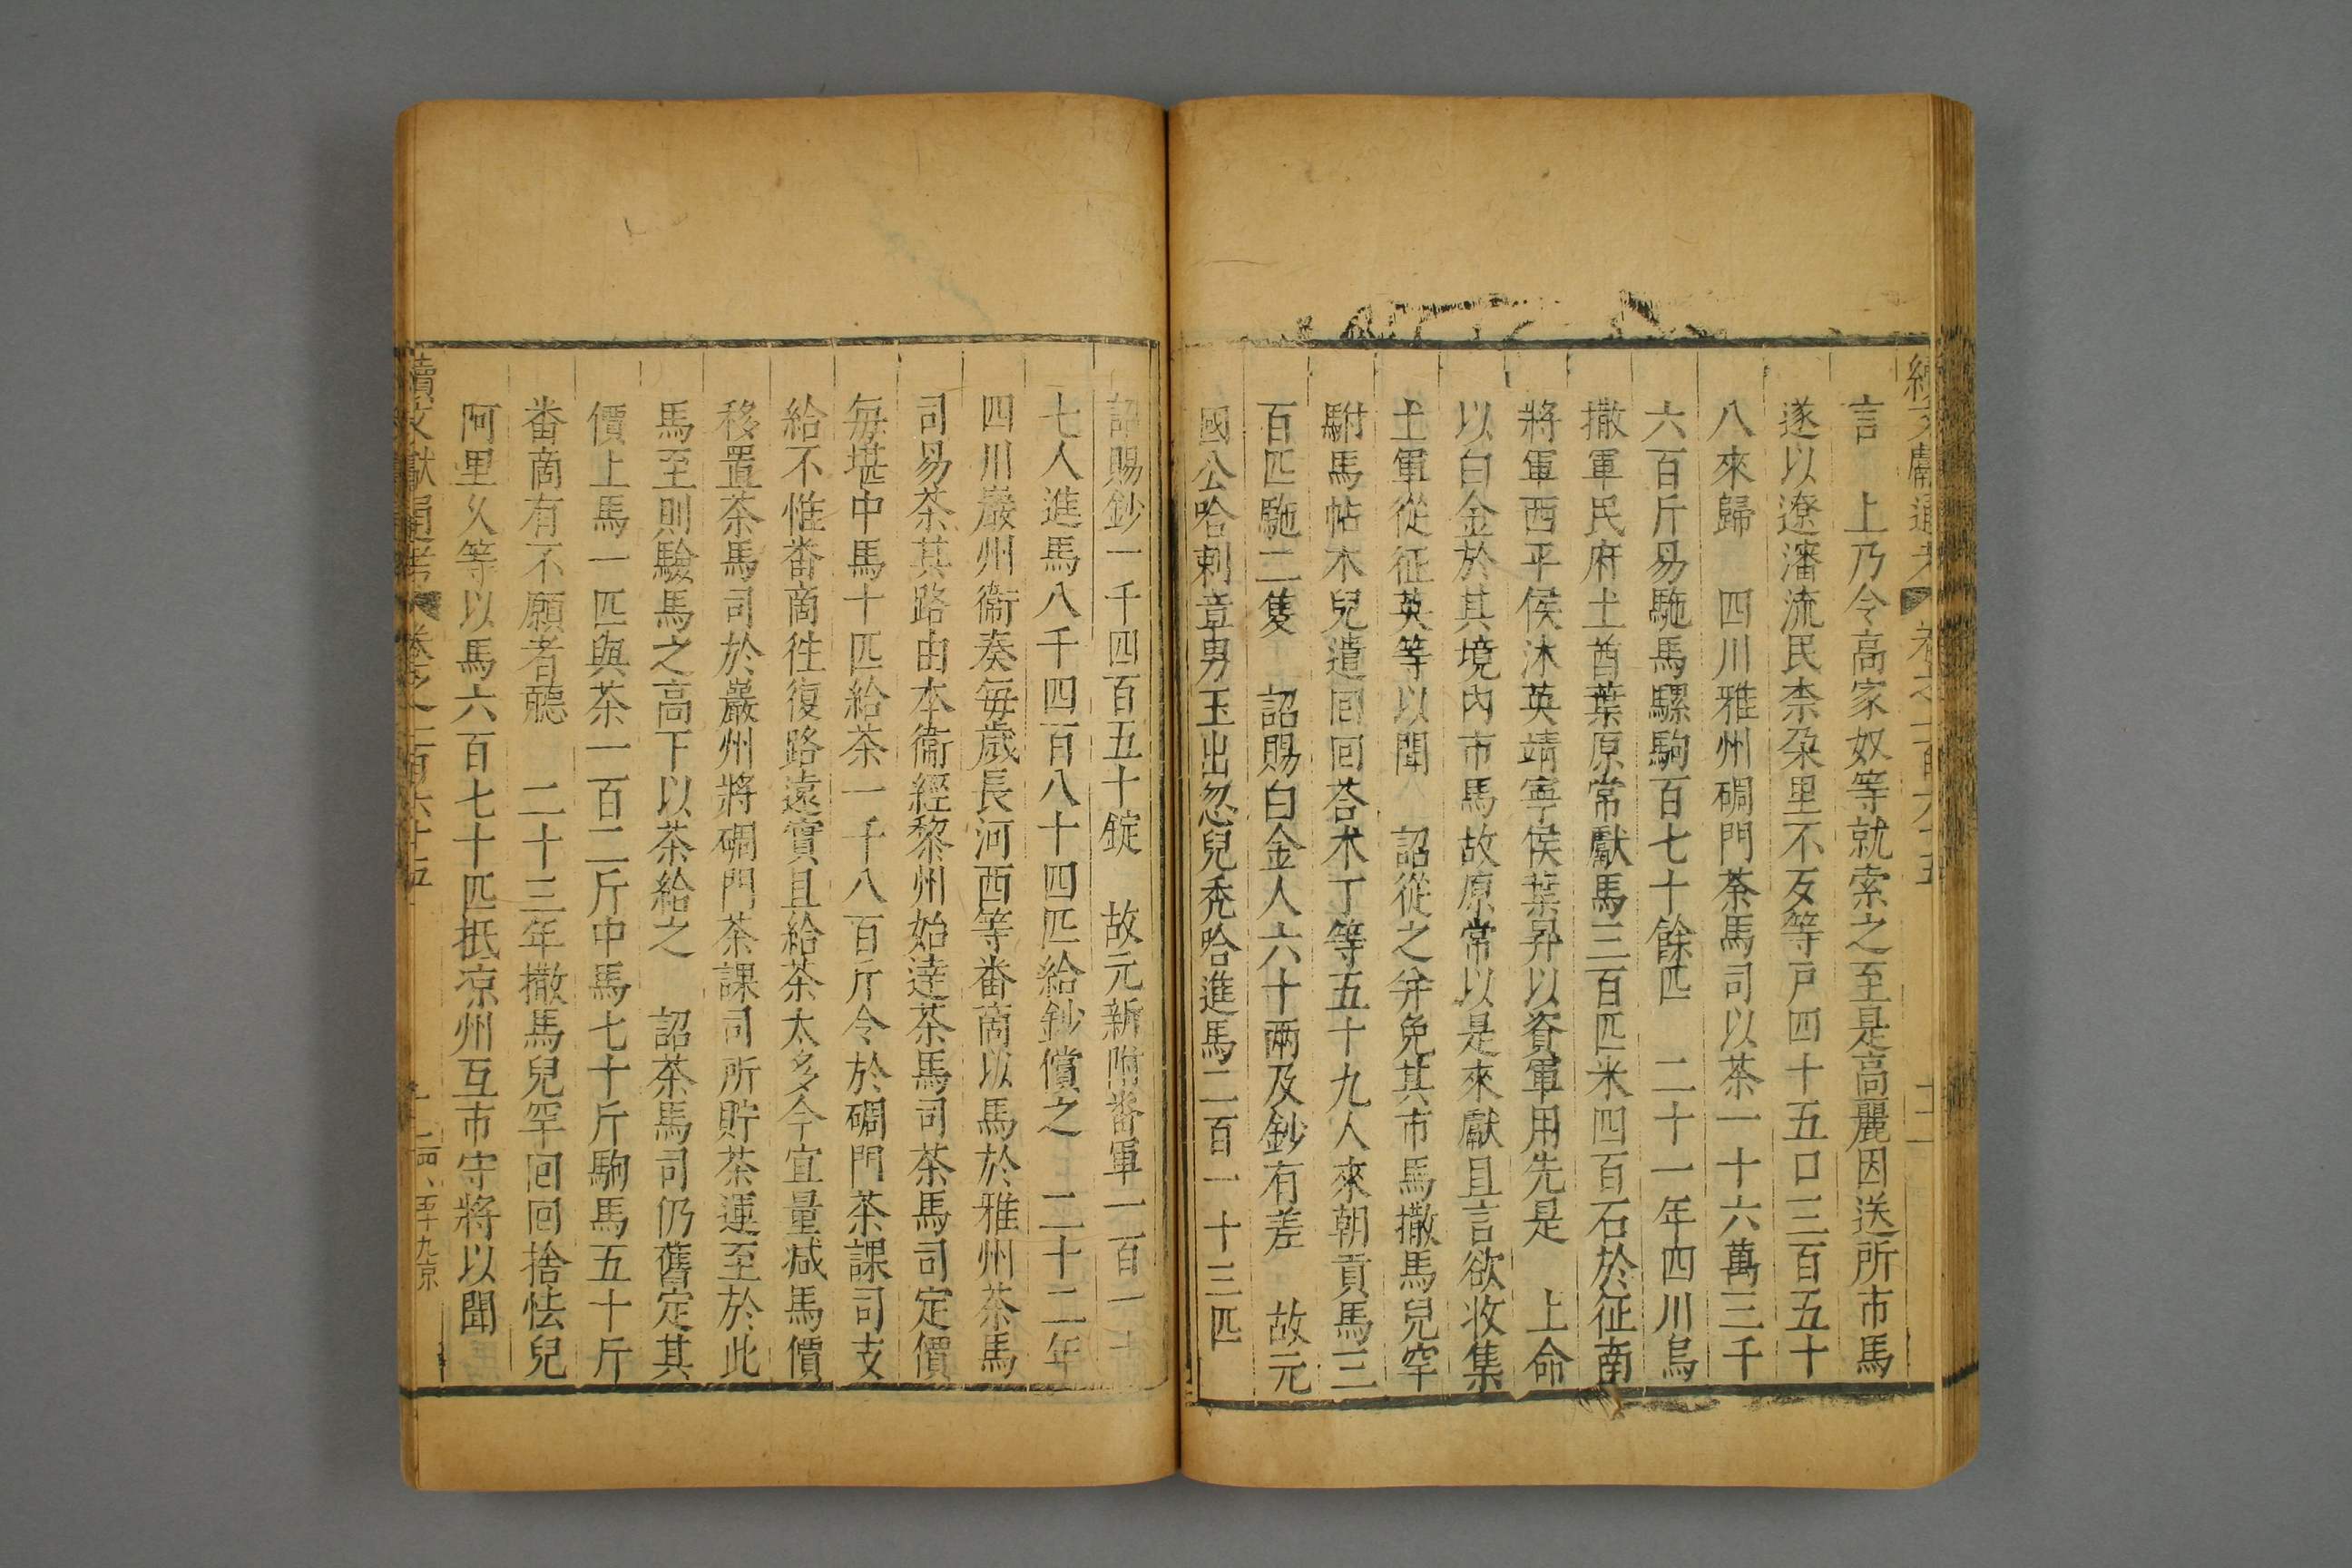 言　上乃令高家奴等就索之至是高麗因送所市馬
遂以遼瀋流民柰朶里不歹等戸四十五口三百五十
八來歸　四川雅州碉門茶馬司以茶一十六萬三千
六百斤易駞馬騾駒百七十餘匹　二十一年四川烏
撒軍民府土酋葉原常獻馬三百匹米四百石於征南
將軍西平侯沐英靖寧侯葉昇以資軍用先是　上命
以白金於其境内市馬故原常以是來獻且言欲收集
土軍從征英等以聞　詔從之并免其市馬撒馬兒罕
駙馬帖木兒遣囘囘荅木丁等五十九人來朝貢馬三
百匹駞二隻　詔賜白金人六十兩及鈔有差　故元
國公哈剌章男玉出忽兒秃哈進馬二百一十三匹
詔賜鈔一千四百五十錠　故元新附番軍一百一十
七人進馬八千四百八十四匹給鈔償之　二十二年
四川巖州衞奏每歳長河西等番商以馬於雅州茶馬
司易茶其路由本衞經黎州始達茶馬司茶馬司定價
每堪中馬十匹給茶一千八百斤令於碉門茶課司支
給不惟番商徃復路遠實且給茶太多今宜量減馬價
移置茶馬司於巖州將碉門茶課司所貯茶運至於此
馬至則驗馬之高下以茶給之　詔茶馬司仍舊定其
價上馬一匹與茶一百二斤中馬七十斤駒馬五十斤
番商有不願者聽　二十三年撒馬兒罕囘囘捨怯兒
阿里乂等以馬六百七十匹抵凉州互市守將以聞
續文獻通考　卷之二百六十五